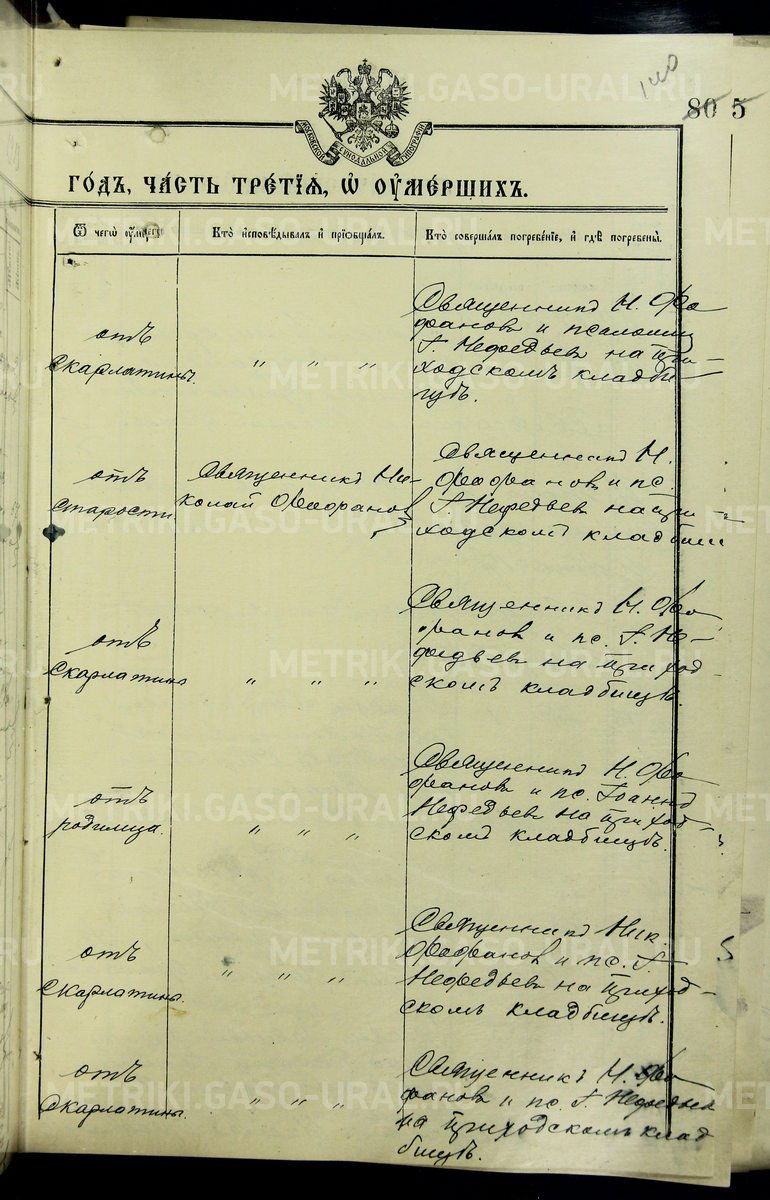 140
80 5
МОСКОВСКОЙ СѴНОДАЛЬНОЙ ТИПОГРАФІИ
ГО́ДЪ, ЧА́СТЬ ТРЕ́ТІѦ, Ѡ ОУ҆МЕ́РШИХЪ.
Ѿ чегѡ̀ оу҆́мре
Кто̀ и҆сповѣ́дывалъ и҆ прїѡбща́лъ.
Кто̀ соверша́лъ погребе́нїе, и҆ гдѣ̀ погребены̀.
отъ
скарлатины.
" " "
Священникъ Н. Ѳео
фановъ и псаломщ
І. Нефедьевъ на при-
ходскомъ кладби
щѣ.
отъ
старости
Священникъ Ни-
колай Ѳеофановъ
Священникъ Н.
Ѳеофановъ и пс.
І. Нефедьевъ на при-
ходскомъ кладбищ
отъ
скарлатины
" " "
Священникъ Н. Ѳео
фановъ и пс. І. Не-
федьевъ на приход-
скомъ кладбищѣ.
отъ
родимца.
" " "
Священникъ Н. Ѳео
фановъ и пс. Іоаннъ
Нефедьевъ на приход-
скомъ кладбищѣ.
отъ
скарлатины.
" " "
Священникъ Ник.
Ѳеофановъ и пс. І.
Нефедьевъ на приход-
скомъ кладбищѣ.
отъ
скарлатины.
" " "
Священникъ Н. Ѳео
фановъ и пс. І. Нефедьев
на приходскомъ клад
бищѣ.
METRIKI.GASO-URAL.RU